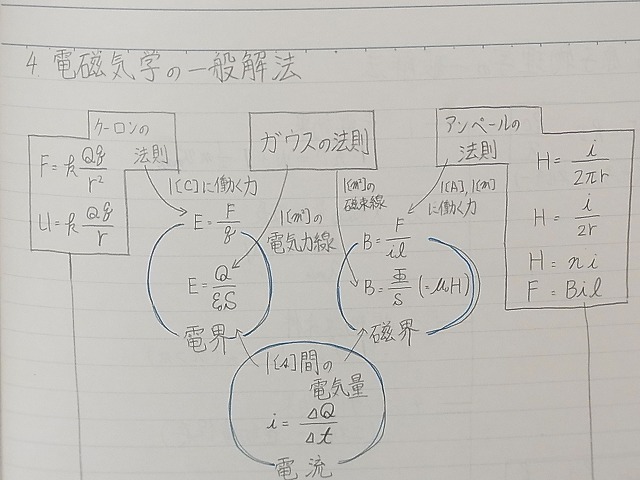 4. 電磁気学の一般解法
クーロンの
法則
F = k Qq/r²
U = k Qq/r
ガウスの法則
アンペールの
法則
H = i/2πr
H = i/2r
H = ni
F = Bil
1[C]に働く力
E = F/q
1[m²]の
電気力線
E = Q/εS
電界
1[m²]の
磁束線
1[A],1[m]
に働く力
B = F/il
B = Φ/S (=μH)
磁界
1[s]間の
電気量
i = ΔQ/Δt
電流